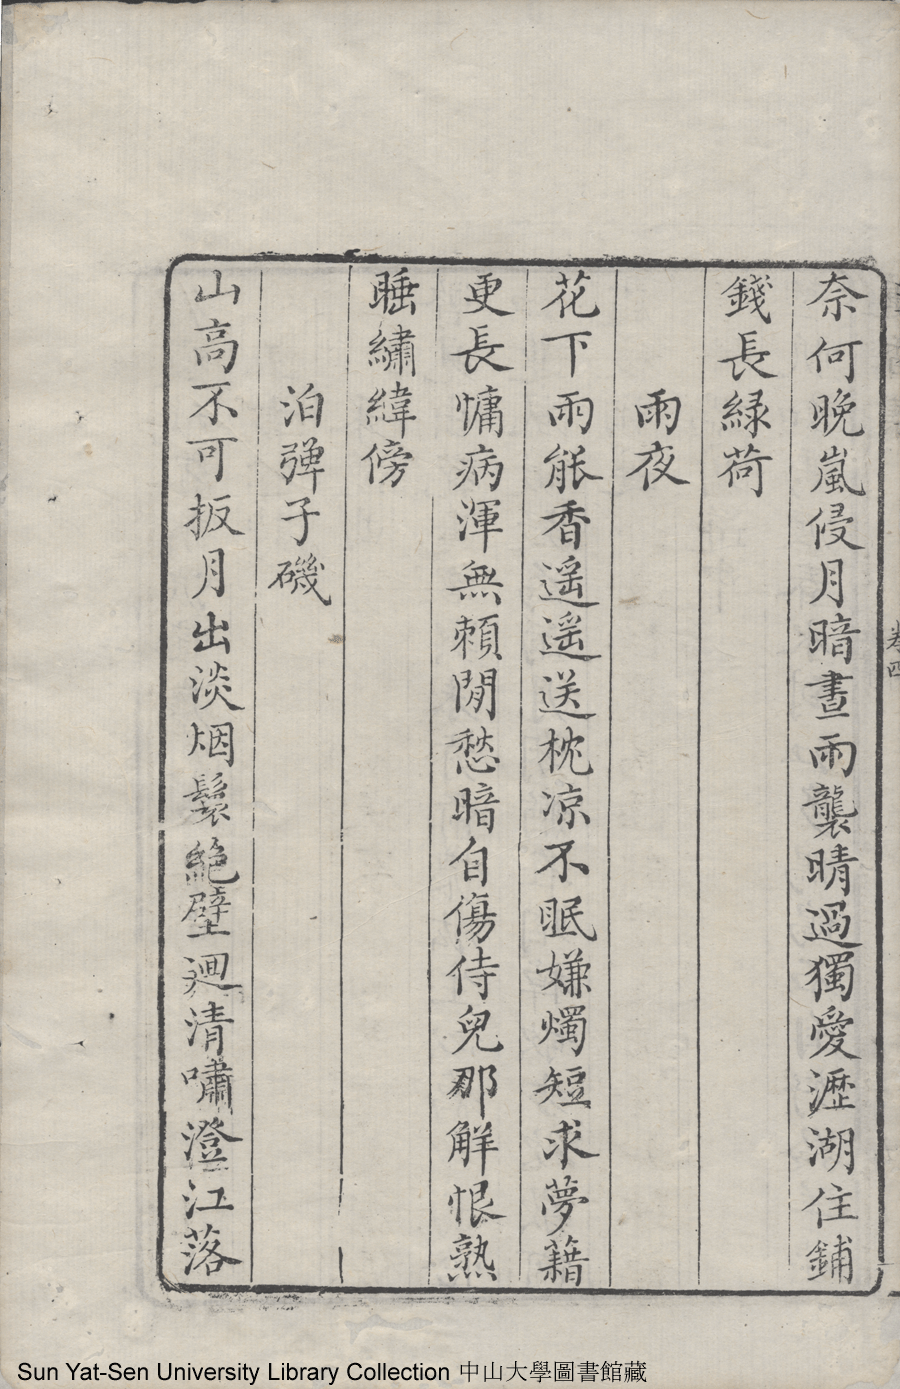 奈何晚嵐侵月暗晝雨襲晴過獨愛瀝湖住鋪
錢長緑荷
雨夜
花下雨能香遥遥送枕凉不眠嫌燭短求夢藉
更長慵病渾無頼閒愁暗自傷侍兒那解恨熟
睡繡幃傍
泊彈子磯
山高不可扳月出淡烟鬟絶壁迴清嘯澄江落
卷四
Sun Yat-Sen University Library Collection 中山大學圖書館藏